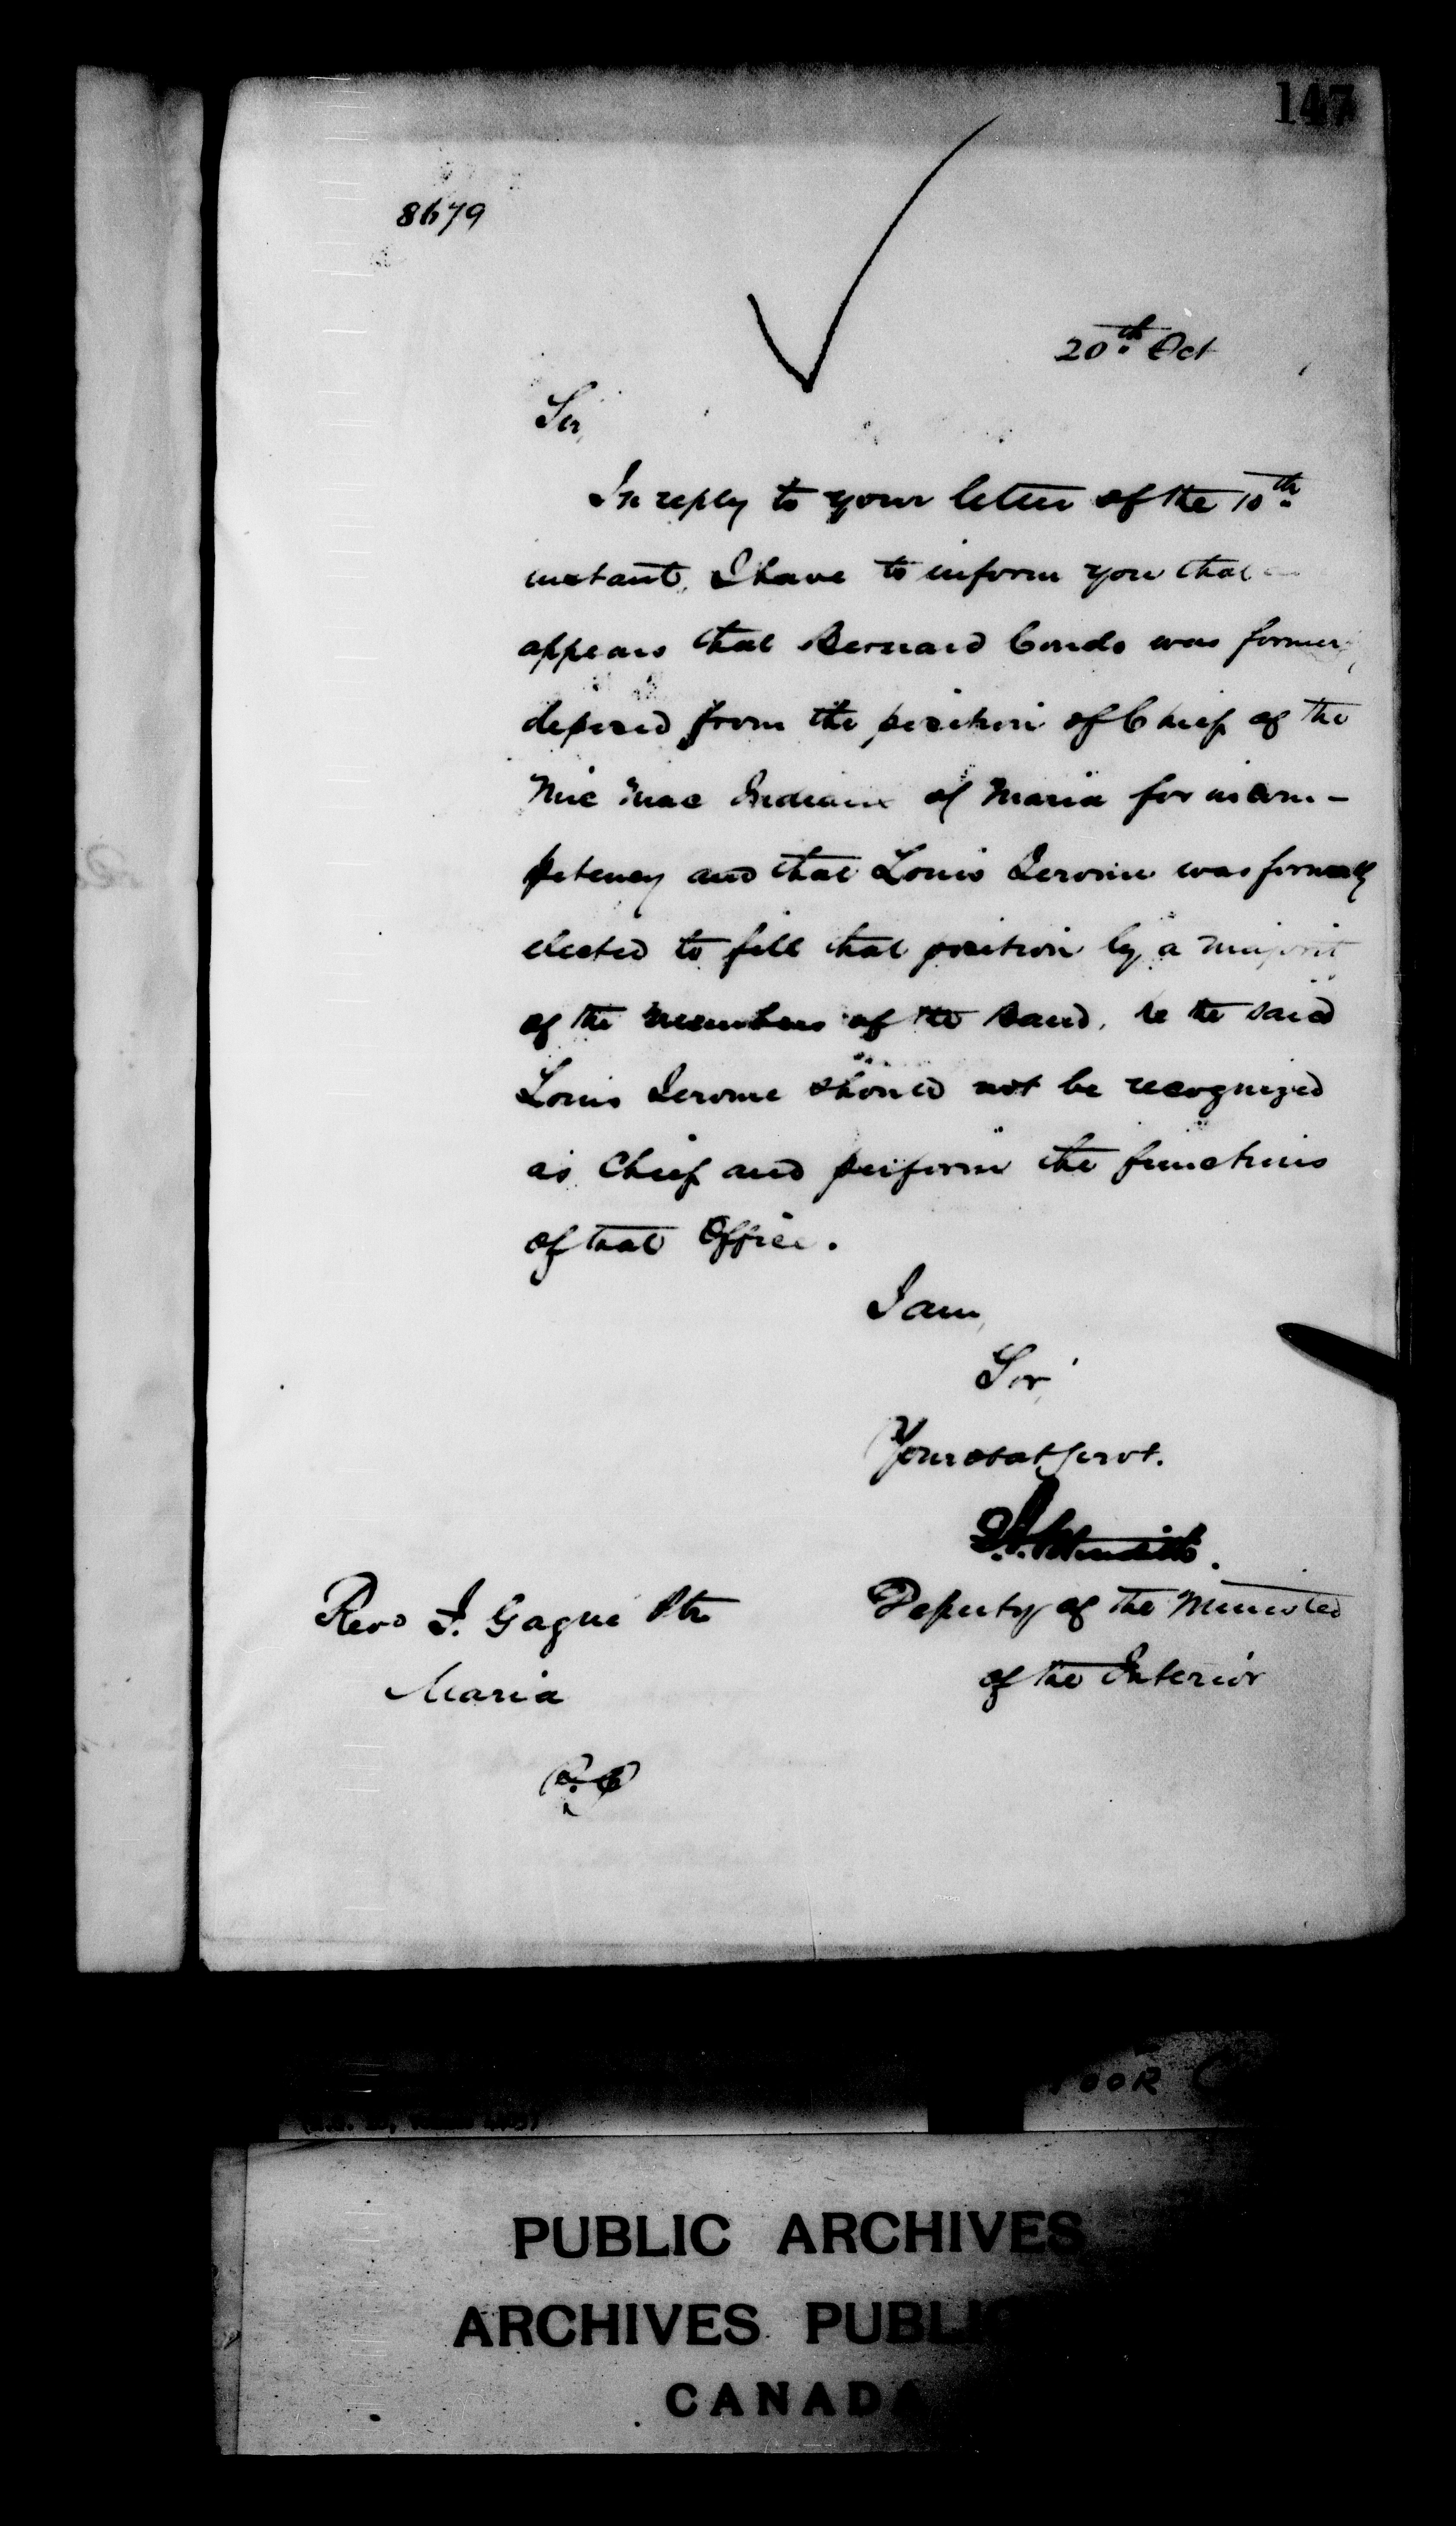 147
8679
20th Oct
Sir,
In reply to your letter of the 10th
instant, I have to inform you that
appears that Bernard Condo was former
deposed from the position of Chief of the
Mic Mac Indians of Maria for incom-
petency and that Louis Jerome was formally
elected to fill that position by a majorit
of the members of the Band, he the said
Louis Jerome should not be recognized
as Chief and perform the functions
of that Office.
I am,
Sir,
Your obat Servt.
Deputy of the Minister
of the Interior
Revd J. Gagne Ptr
Maria
P.Q
PUBLIC ARCHIVES
ARCHIVES PUBLI
CANADA